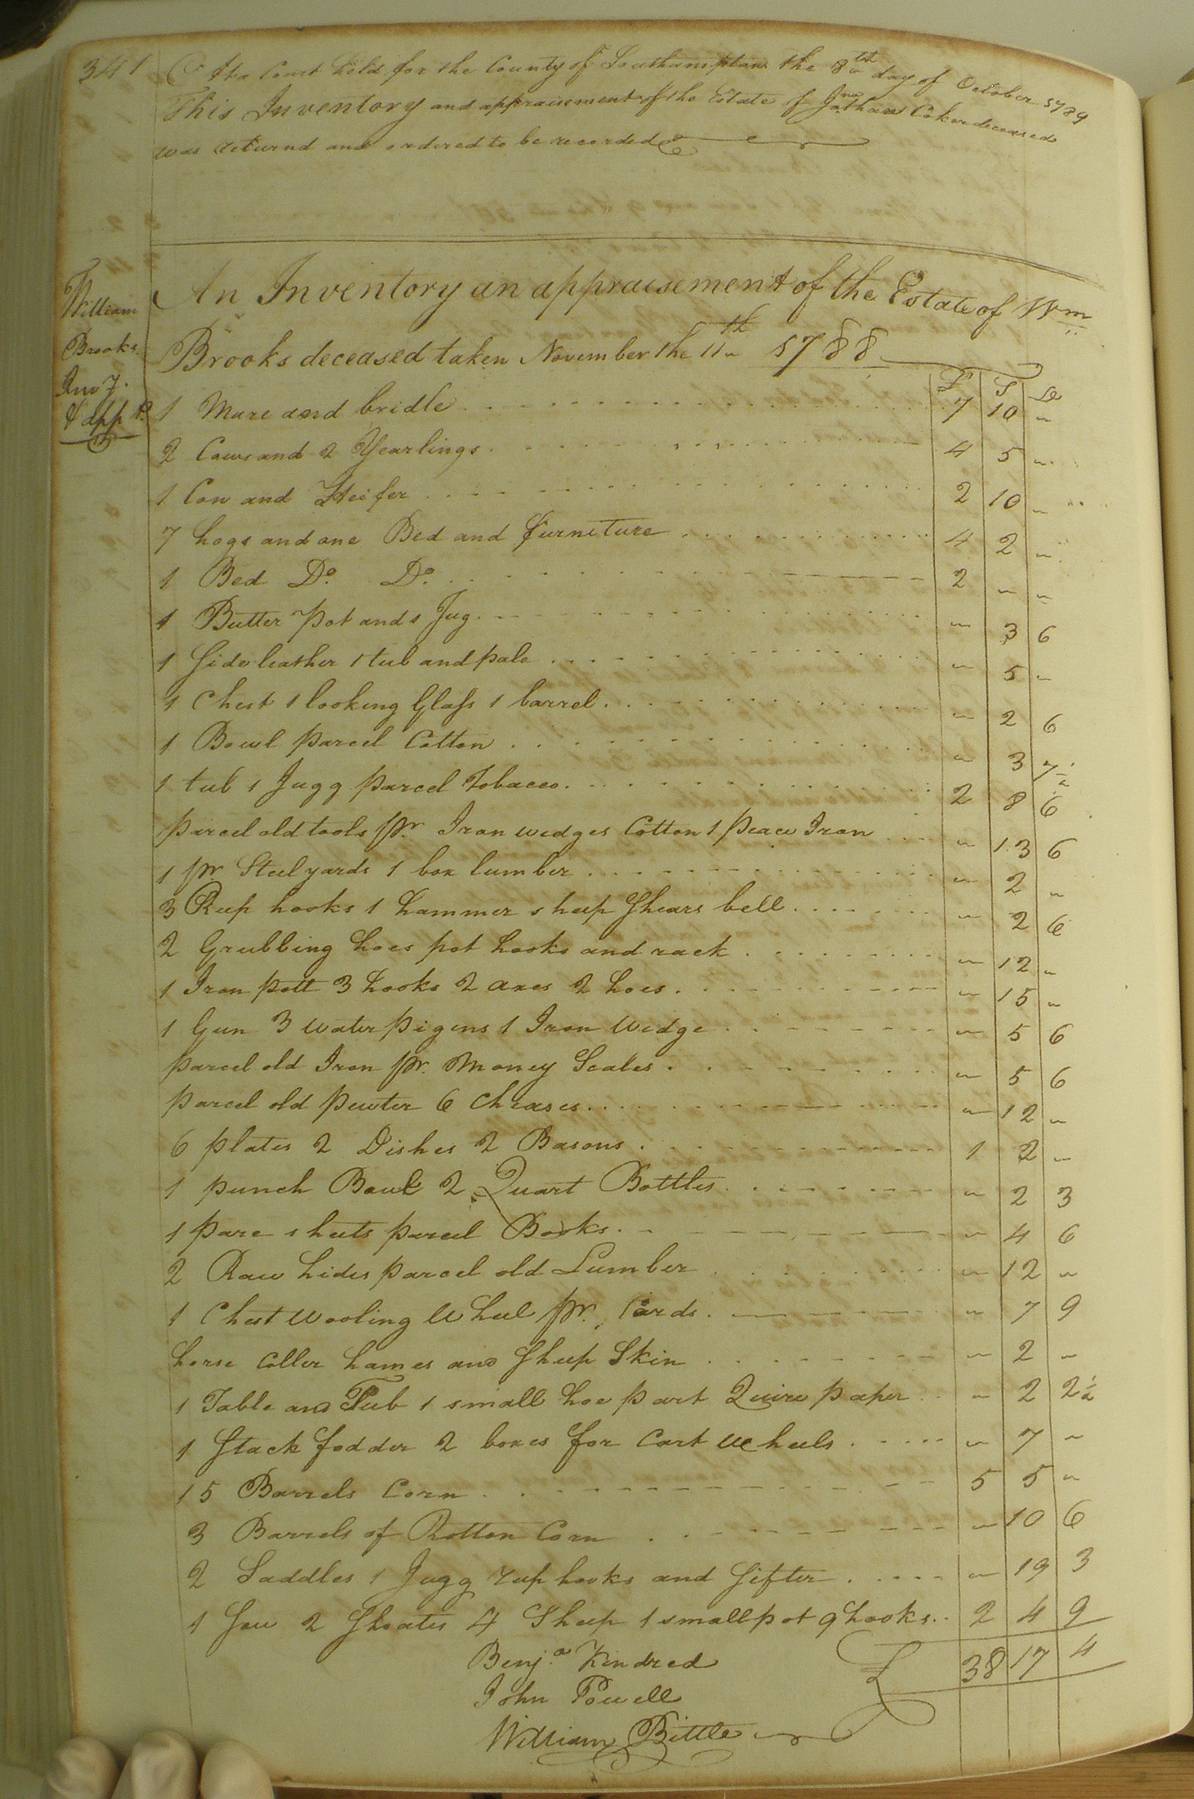 341
At a Court held for the County of Southampton the 8th day of October 1789
This Inventory and appraisement of the Estate of Jonathan Coker deceased
was returnd and ordered to be recorded
William
Brooks
Inv.y
& app.t
An Inventory an appraisement of the Estate of Wm
Brooks deceased taken November the 11th 1788
£ S D
1 Mare and bridle 7 10 "
2 Cows and 2 Yearlings 4 5 "
1 Cow and Heifer 2 10 "
7 hogs and one Bed and furniture 4 2 "
1 Bed Do. Do. 2 " "
1 Butter Pot and 1 Jug " 3 6
1 Side leather 1 tub and pale " 5 "
1 Chest 1 looking Glass 1 barrel " 2 6
1 Bowl parcel Cotton " 3 7½
1 tub 1 Jugg parcel Tobacco 2 8 6
parcel old tools pr. Iron wedges Cotton 1 peace Iron " 13 6
1 pr. Steelyards 1 box lumber " 2 "
3 Reep hooks 1 hammer sheep Shears bell " 2 6
2 Grubbing hoes pot hooks and rack " 12 "
1 Iron pott 3 hooks 2 axes 2 hoes " 15 "
1 Gun 3 water pigens 1 Iron Wedge " 5 6
parcel old Iron pr. Money Scales " 5 6
parcel old pewter 6 Cheases " 12 "
6 plates 2 Dishes 2 Basons 1 2 "
1 punch Bowl 2 Quart Bottles " 2 3
1 pare sheets parcel Books " 4 6
2 Raw hides parcel old Lumber " 12 "
1 Chest wooling Wheel pr. Cards " 7 9
horse Coller hames and Sheep Skin " 2 "
1 Table and Tub 1 small hoe part Quire paper " 2 2½
1 Stack fodder 2 boxes for Cart Wheels " 7 "
15 Barrels Corn 5 5 "
3 Barrels of Rotton Corn " 10 6
2 Saddles 1 Jugg reap hooks and Sifter " 19 3
1 Sow 2 Shoates 4 Sheep 1 small pot 9 hooks 2 4 9
£ 38 17 4
Benj.a Kindred
John Powell
William Bittle